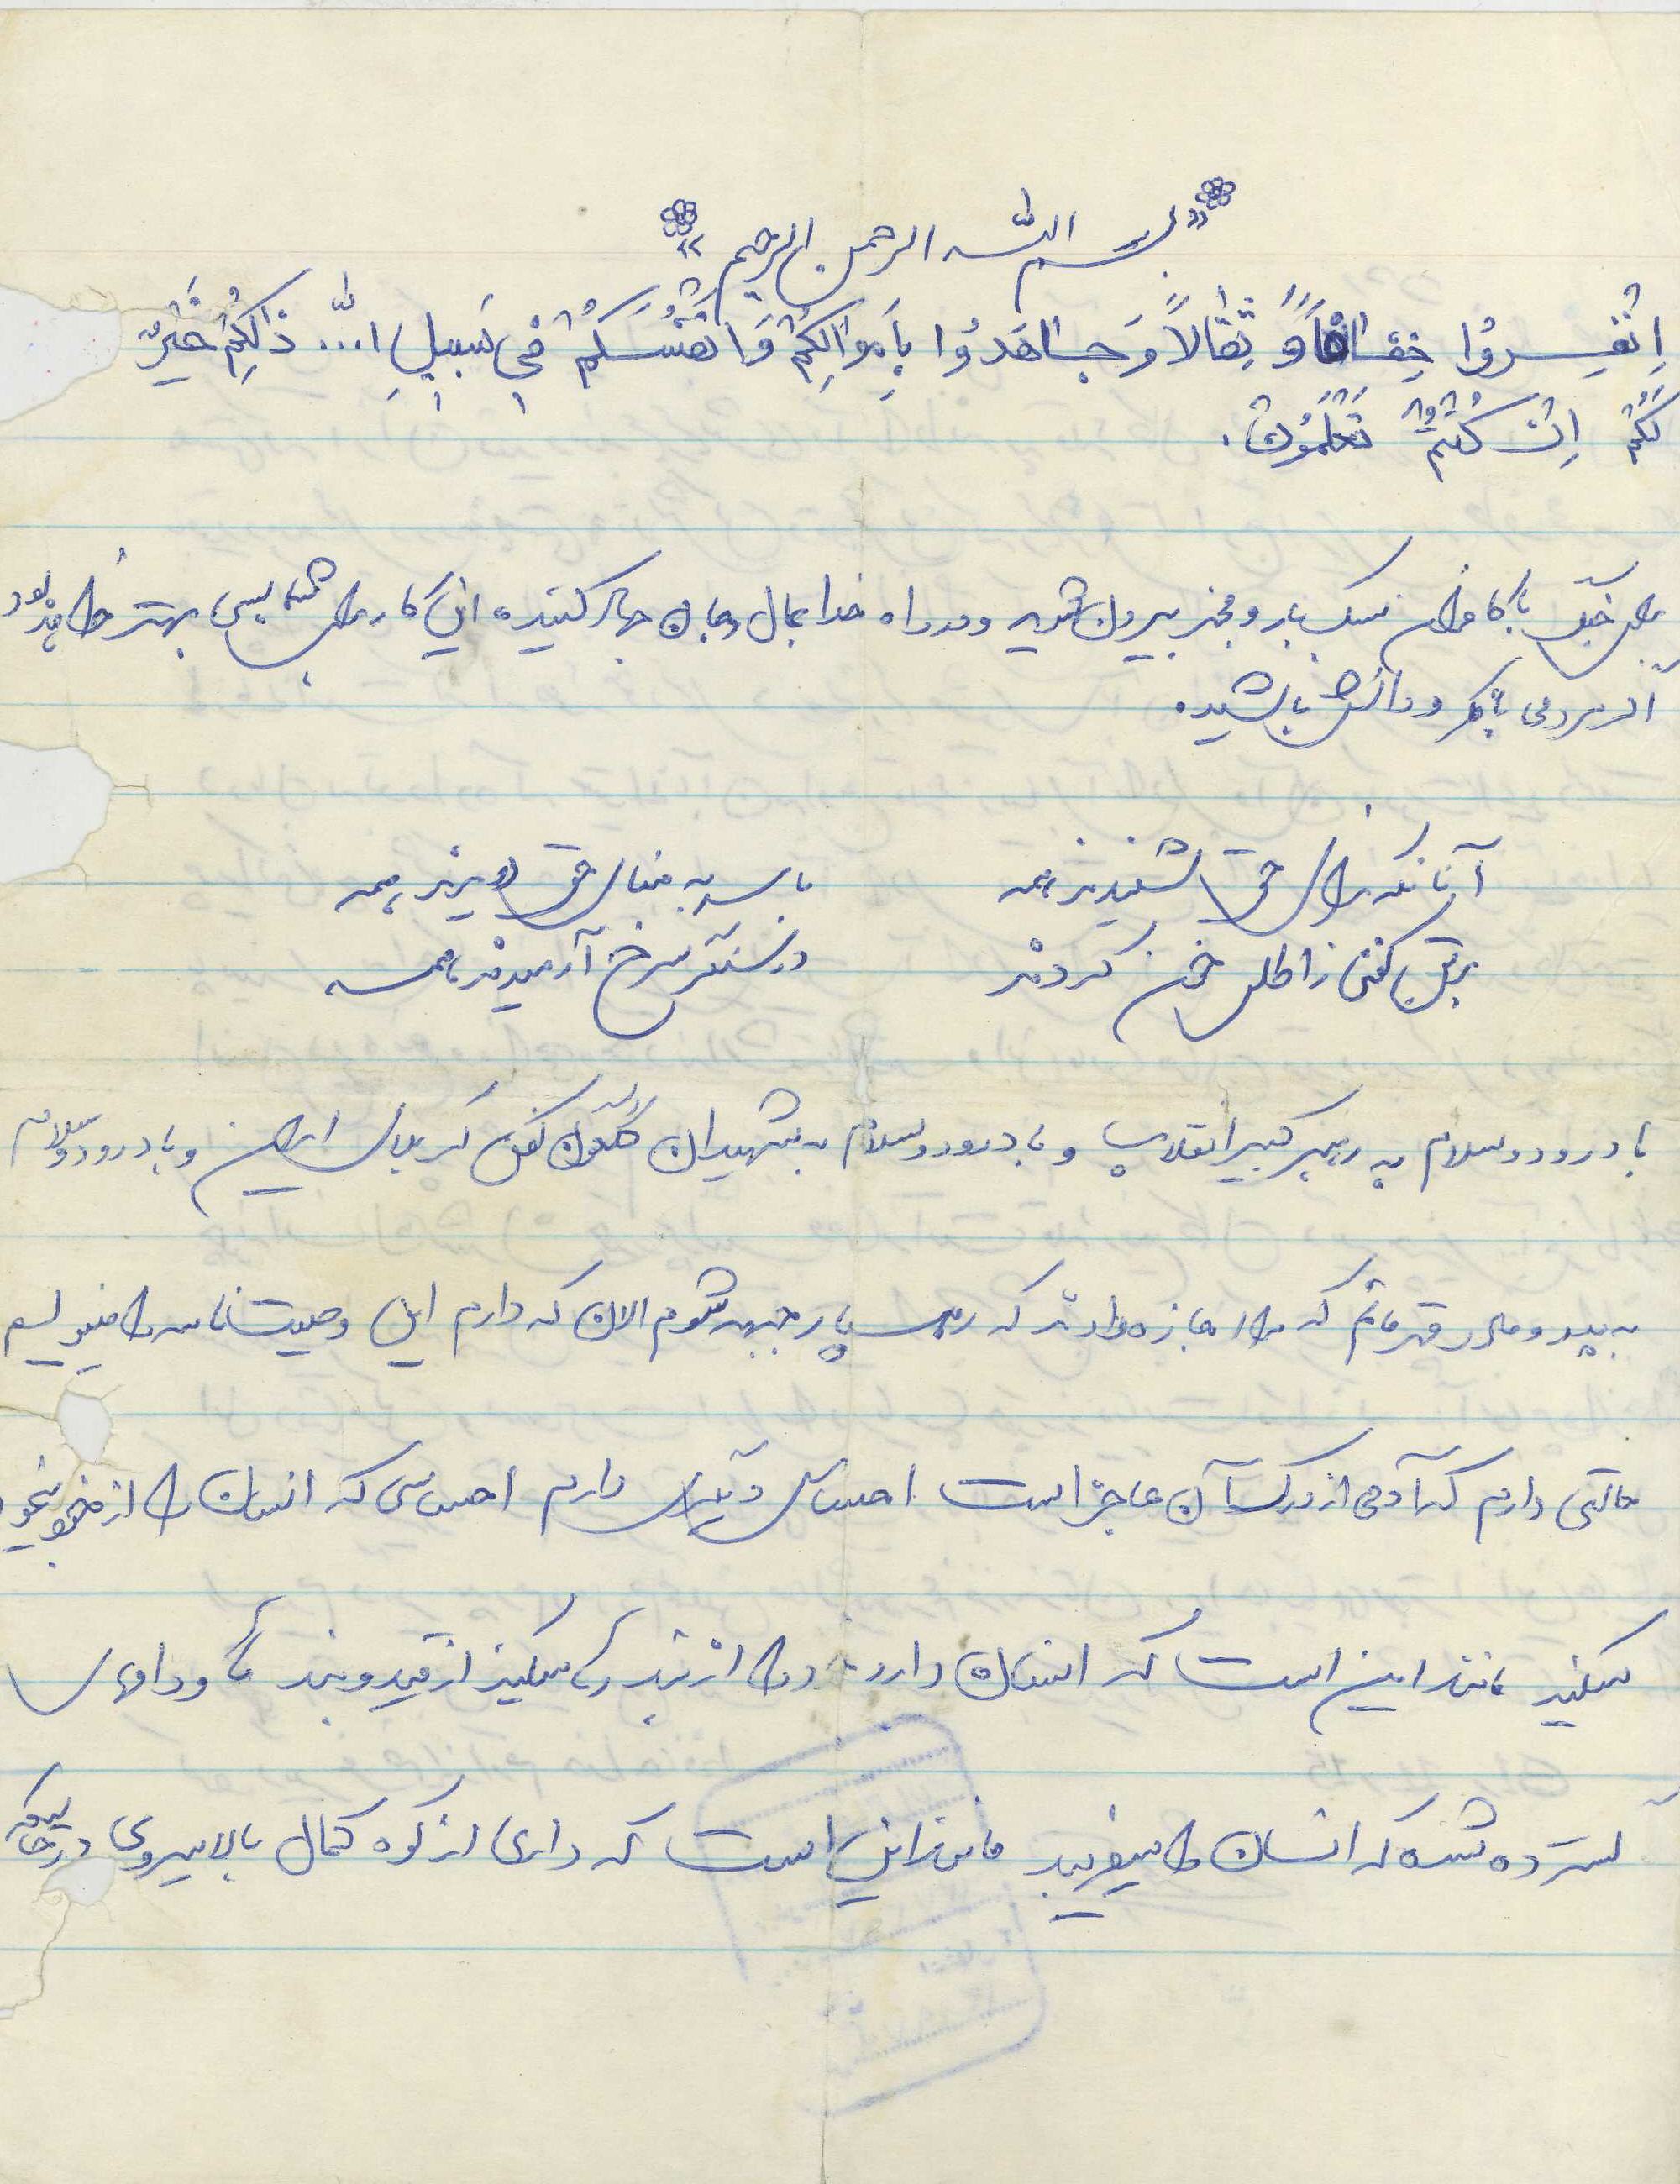 «بسم الله الرحمن الرحیم»
اِنْفِـروُا خِفـافاً وَ ثِقٰالاً وَ جـاهَدُوا بِاَموٰالِکُمْ وَ اَنْفُسَـکُمْ فی سَبیلِ ا... ذٰلِکُمْ خَیْرٌ
لَکُمْ اِنْ کُنْتُمْ تَعْلَمُونَ.
برای جنگ با کافران سبک بار و مجهز بیرون شوید و در راه خدا بمال و جان جهاد کنید. این کار برای شما بسی بهتر خواهد بود
اگر مردمی با فکر و دانش باشید.
آنانکه ندای حق شنیدند همه
با سر به منای حق دویدند همه
برتن کفنی ز اطلس خون کردند
در سنگر سرخ آرمیدند همـه
با درود و سلام به رهبر کبیر انقلاب و با درود و سلام به شهیدان گلگون کفن کربلای ایران و با درود و سلام
به پدر و مادر قهرمانم که مرا اجازه دادند که رهسپار جبهه شوم الان که دارم این وصیت‌نامه را مینویسم
حالتی دارم که آدمی از درک آن عاجز است احساس دیگری دارم احساسی که انسان را از خود بیخود
میکند مانند این است که انسان دارد از بند رها میکند از قید و بند ها و دامهای
گسترده شده که انسان را میفریبد مانند این است که داری از کوه کمال بالا میروی در حالیکه